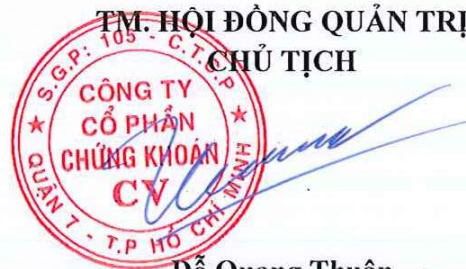 TM. HỘI ĐỒNG QUẢN TRỊ
CHỦ TỊCH
S.G.P: 105 - C.T.C.P
CÔNG TY
CỔ PHẦN
CHỨNG KHOÁN
CV
QUẬN 7 - T.P HỒ CHÍ MINH
Đỗ Quang Thuận